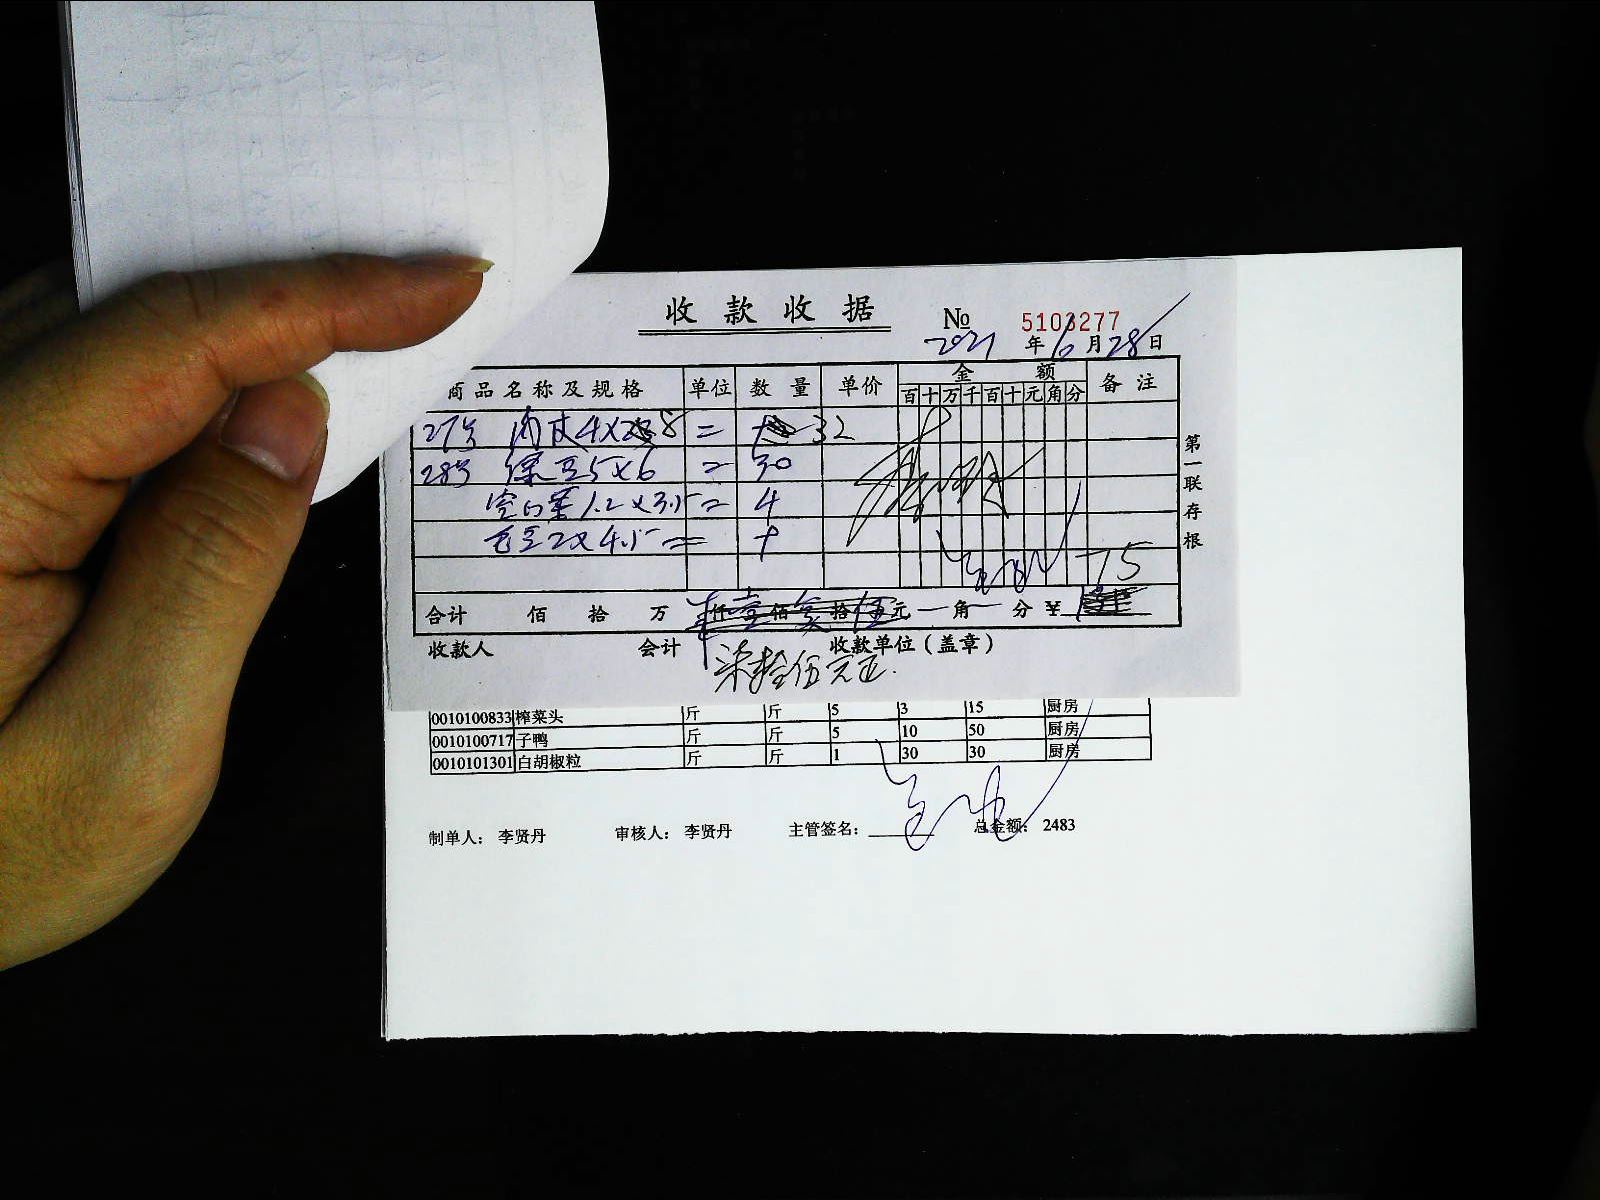 收款收据
№ 5103277
2021年6月28日
商品名称及规格 单位 数量 单价 金额 备注
百十万千百十元角分
27号 肉皮4×8 = 32
28号 绿豆5×6 = 30
空心菜1.2×3.5 = 4
毛豆2×4.5 =
75
合计 佰 拾 万 仟 壹 佰 拾 伍 元 角 分 ¥
收款人 会计 收款单位(盖章)
柒拾伍元正.
第一联存根
0010100833 榨菜头 斤 斤 5 3 15 厨房
0010100717 子鸭 斤 斤 5 10 50 厨房
0010101301 白胡椒粒 斤 斤 1 30 30 厨房
制单人: 李贤丹 审核人: 李贤丹 主管签名: 总金额: 2483